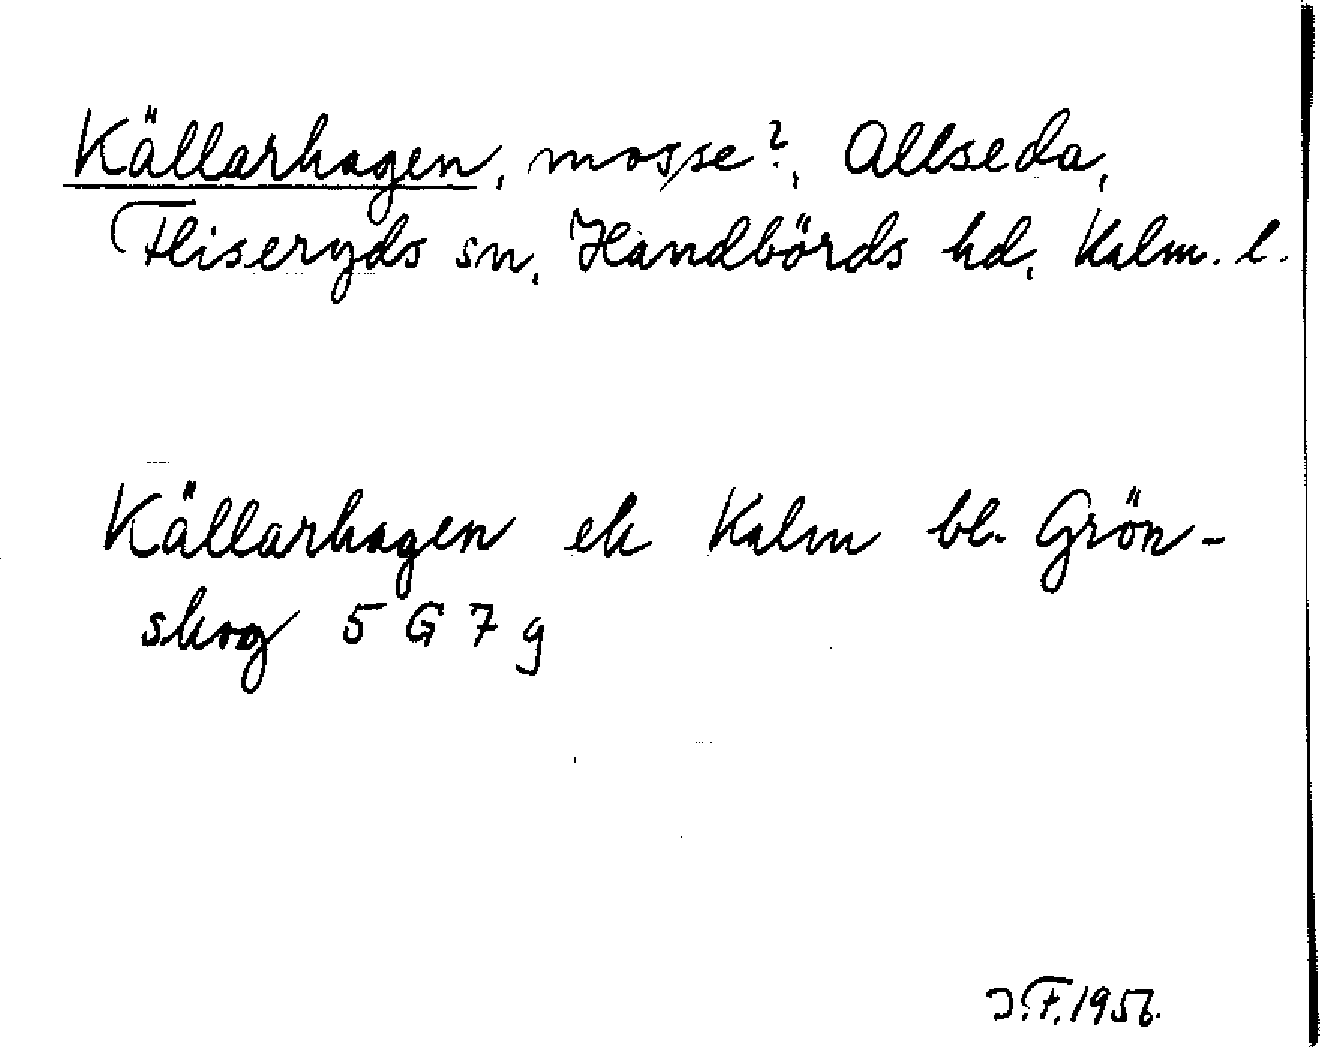 Källarhagen, mosse?, Allseda,
Fliseryds sn, Handbörds hd, Kalm. l.
Källarhagen ek Kalm bl. Grön-
skog 5 G 7 g
J.F. 1956.